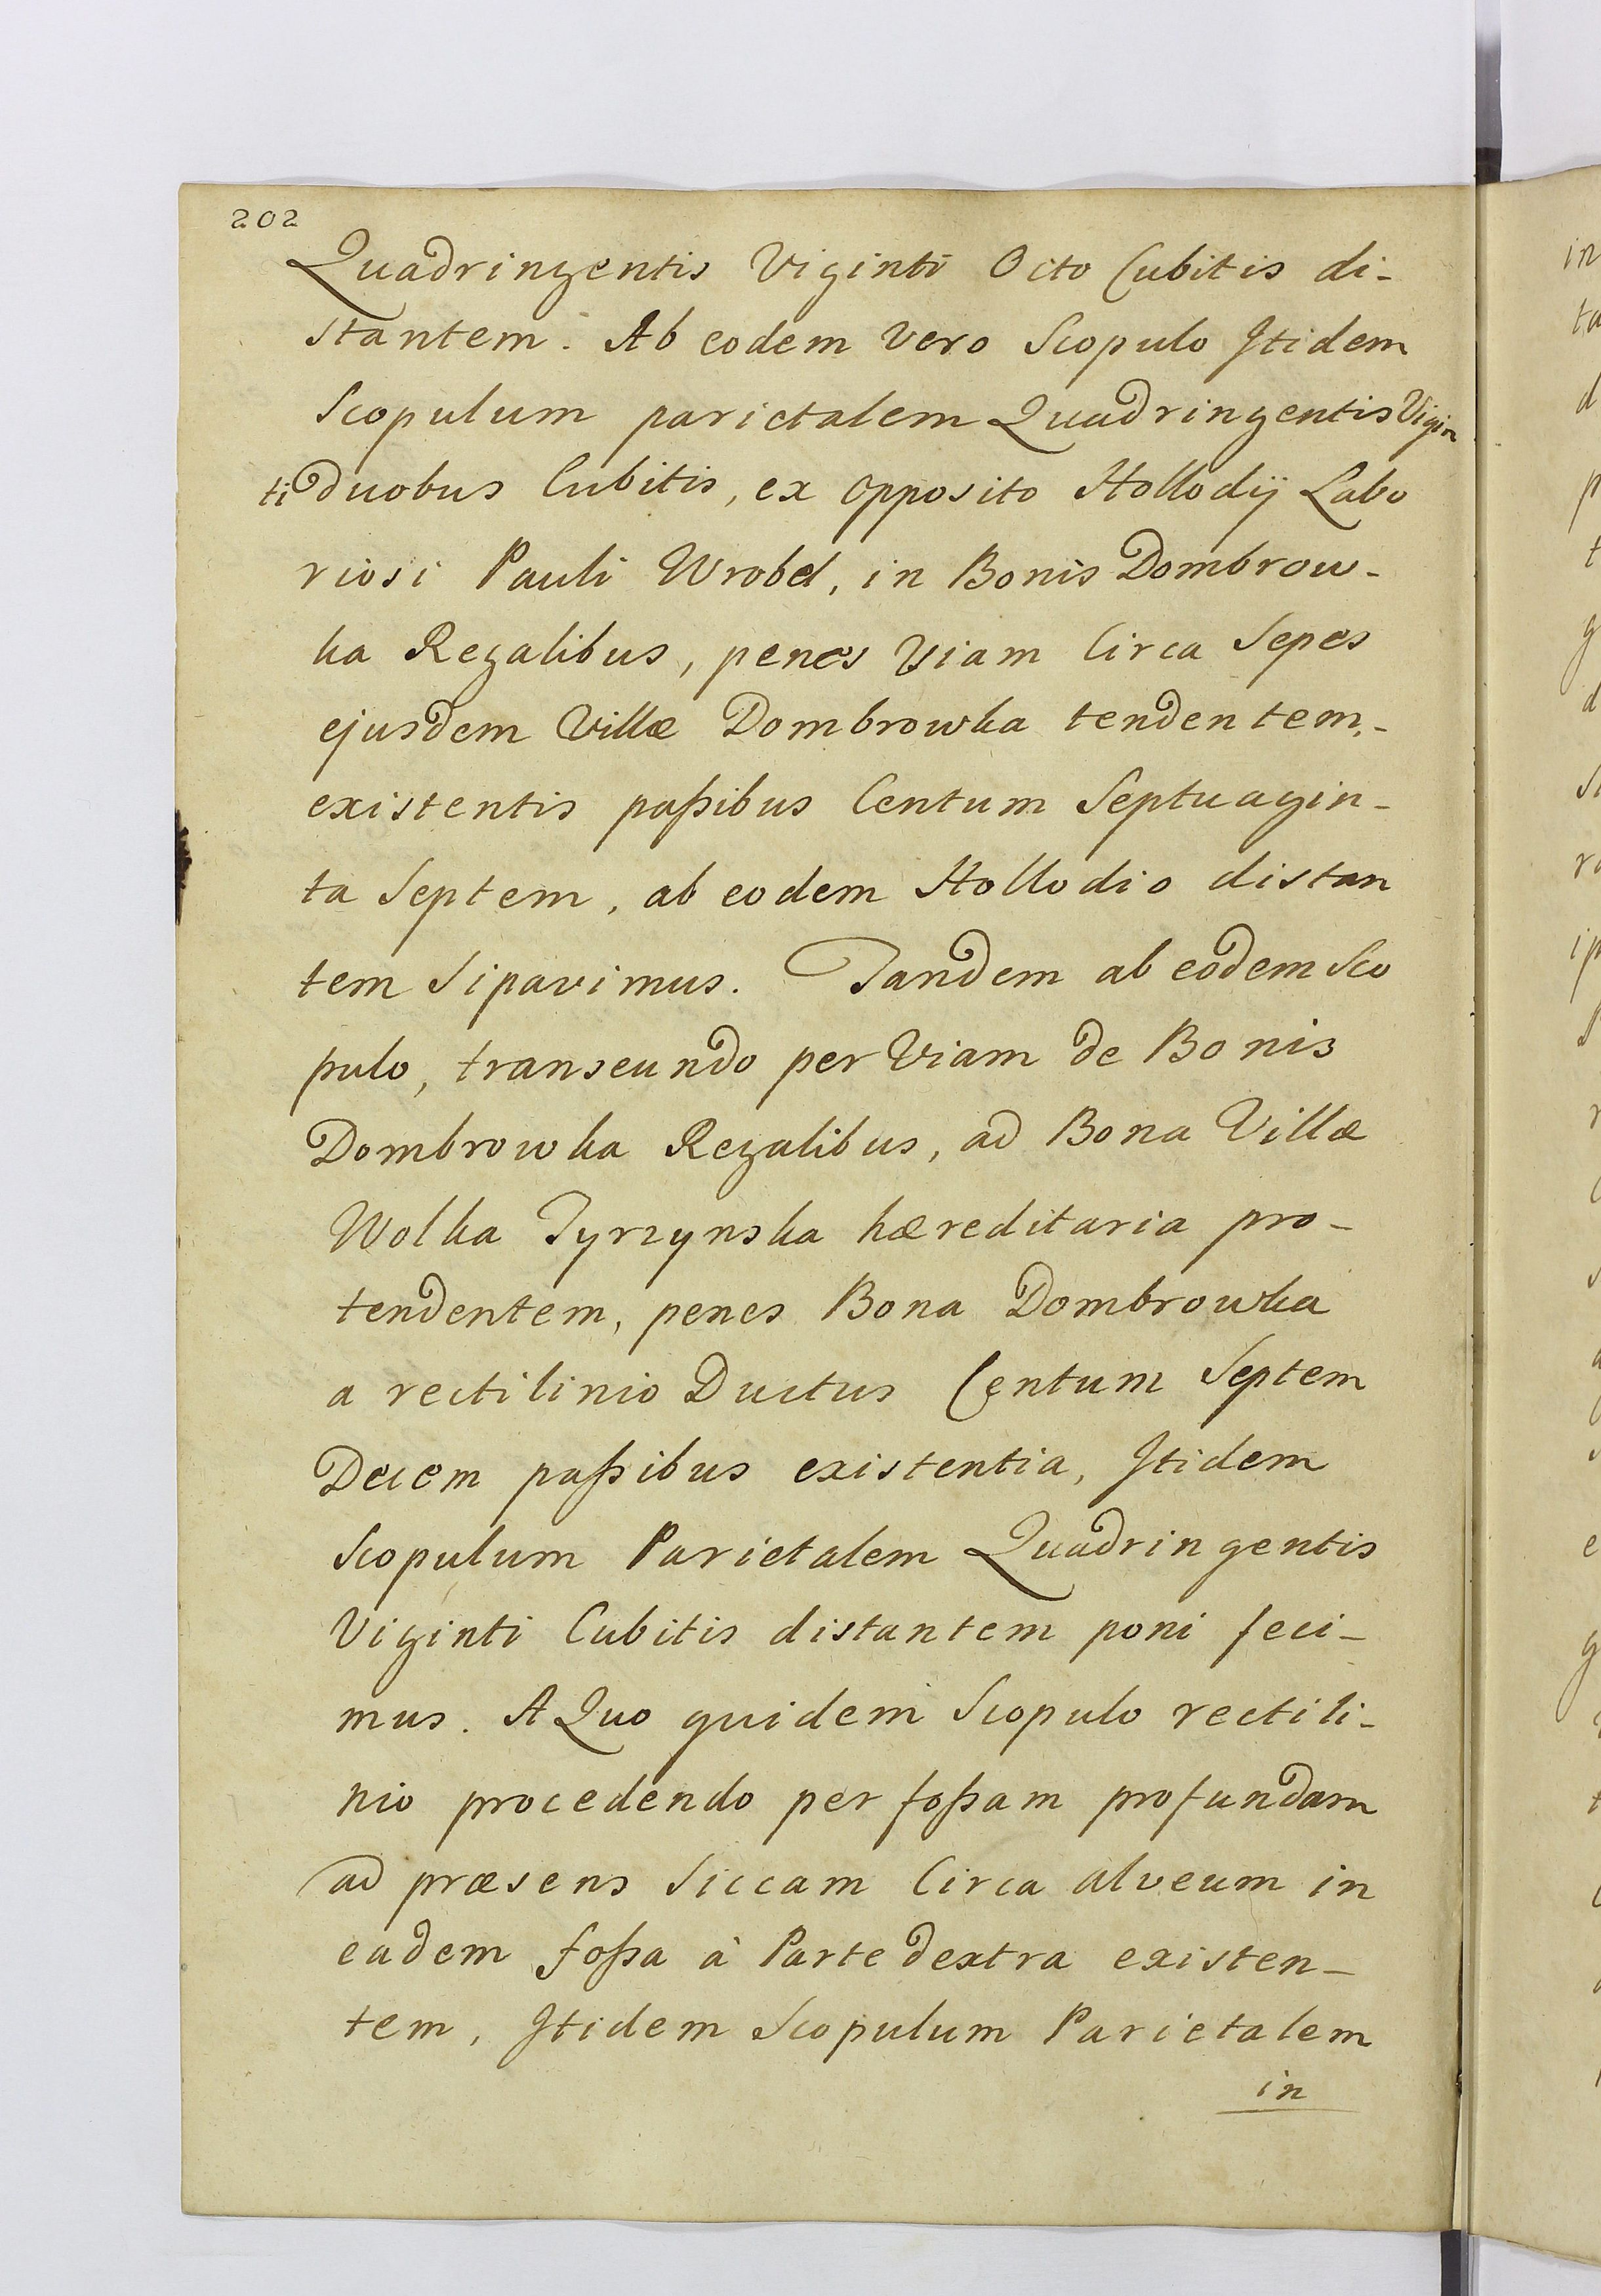 202
Quadringentis Viginti Octo Cubitis di-
stantem. Ab eodem vero Scopulo Itidem
Scopulum parietalem Quadringentis Vigin
ti duobus Cubitis, ex opposito Hollodij Labo
riosi Pauli Wrobel, in Bonis Dombrow-
ka Regalibus, penes viam Circa Sepes
ejusdem Villæ Dombrowka tendentem,-
existentis paßibus Centum Septuagin-
ta Septem, ab eodem Hollodio distan
tem Sipavimus. Tandem ab eodem Sco
pulo, transeundo per Viam de Bonis
Dombrowka Regalibus, ad Bona Villæ
Wolka Tyrzynska hæreditaria pro-
tendentem, penes Bona Dombrowka
a rectilinio Ductus Centum Septem
Decem paßibus existentia, Itidem
Scopulum Parietalem Quadringentis
Viginti Cubitis distantem poni feci-
mus. A Quo quidem Scopulo rectili-
nio procedendo per foßam profundam
ad præsens Siccam Circa alveum in
eadem foßa à Parte dextra existen-
tem, Itidem Scopulum Parietalem
in